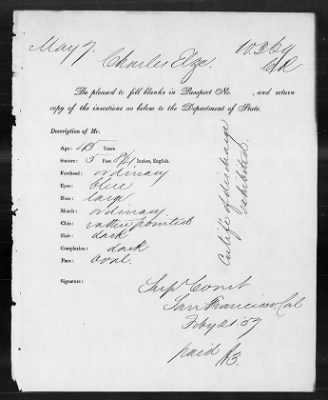 May 7.
Charles Elze.
Be pleased to fill blanks in Passport No. , and return
copy of the insertions as below to the Department of State.
Description of Mr.
Age: 45 Years
Stature: 5 Feet 8 1/2 Inches, English.
Forehead: ordinary
Eyes: blue
Nose: large
Mouth: ordinary
Chin: pointed
Hair: dark
Complexion: dark
Face: Oval.
Certific of discharge
exhibited.
Signature:
San Francisco, Cal
paid